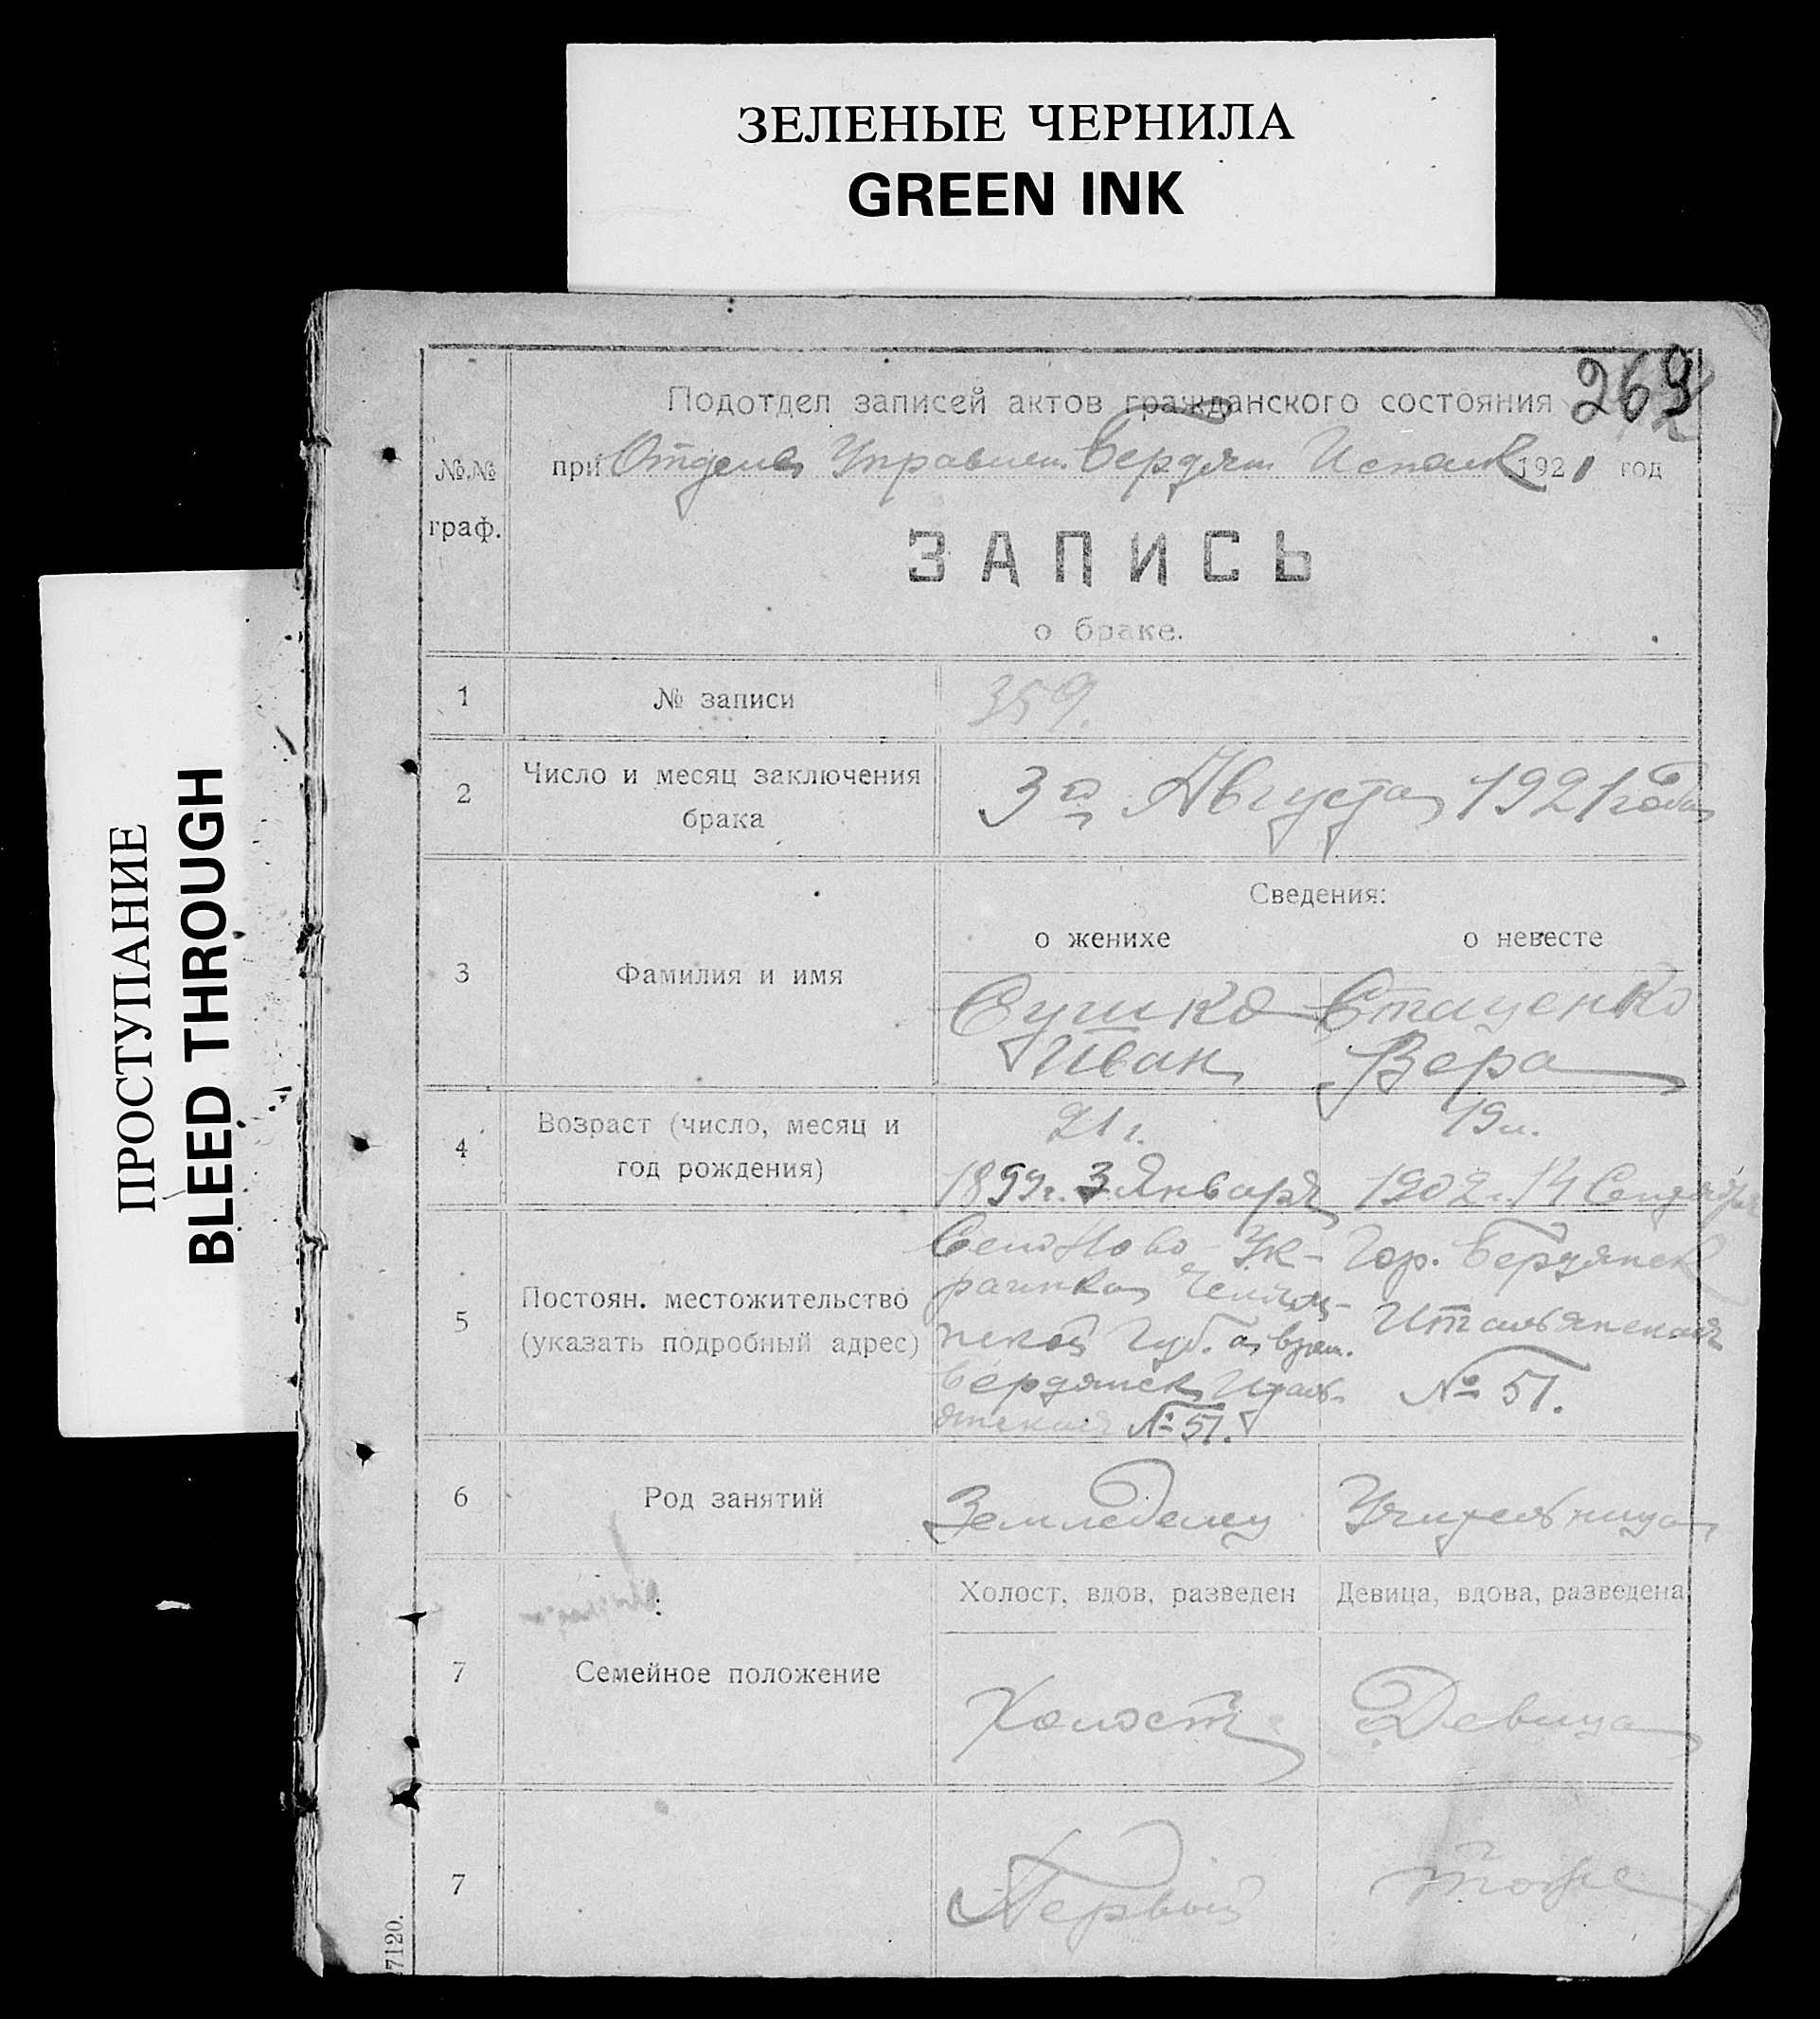 ЗЕЛЕНЫЕ ЧЕРНИЛА
GREEN INK
ПРОСТУПАНИЕ
BLEED THROUGH
269
Подотдел записей актов гражданского состояния
№№ граф.
при Отделе Управлен. Бердян. Исполк 1921 год
ЗАПИСЬ
о браке.
1 № записи 359.
2 Число и месяц заключения брака
3го Августа 1921 года
Сведения:
о женихе о невесте
3 Фамилия и имя
Сушко Стаценко
Иван Вера
4 Возраст (число, месяц и год рождения)
21 г. 19 л.
1899 г. 3 Января 1902 г. 14 Сентября
5 Постоян. местожительство (указать подробный адрес)
Село Ново-Ук- Гор. Бердянск
раинка Итальянская
ской Губ. а врем. № 51.
Бердянск Италь-
янская № 51.
6 Род занятий
Земледелец Учительница
Холост, вдов, разведен Девица, вдова, разведена
7 Семейное положение
Холост Девица
7 Первый тоже
7120.